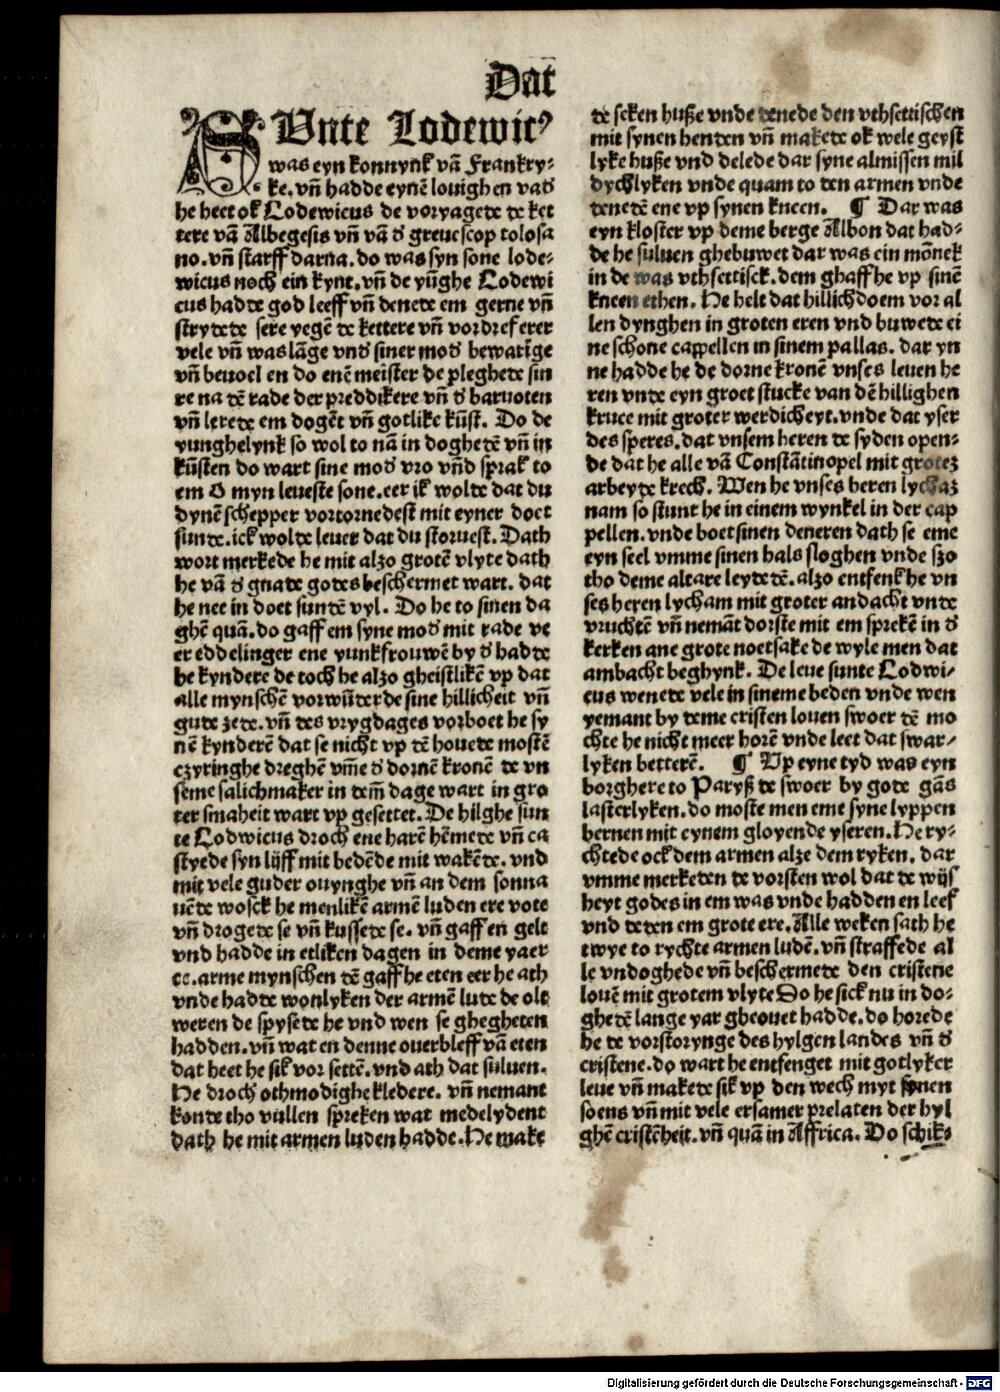 Dat
SUnte Lodewic⁹
was eyn konnynk vā Frankry⸗
ke. vn̄ hadde eynē louighen vad̄
he heet ok Lodewicus de voryagede de ket
tere vā Albegesis vn̄ vā d̄ greuescop tolosa
no. vn̄ starff darna. do was syn sone lode⸗
wicus noch ein kynt. vn̄ de yūghe Lodewi
cus hadde god leeff vn̄ denete em gerne vn̄
strydede sere yegē de kettere vn̄ vordref erer
vele vn̄ was lāge vnd̄ siner mod̄ bewarīge
vn̄ beuoel en do enē meīster de pleghete sin
re na dē rade der preddikere vn̄ d̄ baruoten
vn̄ lerete em dogēt vn̄ gotlike kūst. Do de
yunghelynk so wol to nā in doghetē vn̄ in
kūsten do wart sine mod̄ vro vn̄d sprak to
em O myn leueste sone. eer ik wolte dat du
dynē schepper vortornedest mit eyner doet
sunde. ick wolde leuer dat du storuest. Dath
wort merkede he mit alzo grotē vlyte dath
he vā d̄ gnade godes beschermet wart. dat
he nee in doet suntē vyl. Do he to sinen da
ghē quā. do gaff em syne mod̄ mit rade ve
er eddelinger ene yunkfrouwē by d̄ hadde
he kyndere de toch he alzo gheistlikē vp dat
alle mynschē vorwūterde sine hillicheit vn̄
gude zete. vn̄ des vrygdages vorboet he sy
nē kynderē dat se nicht vp dē houede mostē
czyringhe dreghē vm̄e d̄ dornē kronē de vn
seme salichmaker in dem̄ dage wart in gro
ter smaheit wart vp gesettet. De hilghe sun
te Lodwicus droch ene harē hēmete vn̄ ca
styede syn lijff mit bedēde mit wakēde. vnd
mit vele guder ouynghe vn̄ an dem sonna
uēde wosck he menlikē armē luden ere vote
vn̄ drogete se vn̄ kussete se. vn̄ gaff en gelt
vnd hadde in etliken dagen in deme yaer
cc. arme mynschen dē gaff he eten eer he ath
vnde hadde wonlyken der armē lude de olt
weren de spysete he vnd wen se ghegheten
hadden. vn̄ wat en denne ouerbleff vā eten
dat heet he sik vor settē. vnd ath dat süluen.
He droch othmodighe kledere. vn̄ nemant
konde tho vullen spreken wat medelydent
dath he mit armen luden hadde. He make
de seken huße vnde denede den vthsettischen
mit synen henden vn̄ makete ok wele geyst
lyke huße vnd delede dar syne almissen mil
dychlyken vnde quam to den armen vnde
denetē ene vp synen kneen. ¶ Dar was
eyn kloster vp deme berge Albon dat had⸗
de he süluen ghebuwet dar was ein mōnek
in de was vthsettisck. dem ghaff he vp sinē
kneen ethen. He helt dat hillichdoem vor al
len dynghen in groten eren vnd buwete ei
ne schone cappellen in sinem pallas. dar yn
ne hadde he de dorne kronē vnses leuen he
ren vnde eyn groet stucke van dē hillighen
kruce mit groter werdicheyt. vnde dat yser
des speres. dat vnsem heren de syden open⸗
de dat he alle vā Constātinopel mit grotez
arbeyde krech. Wen he vnses heren lychaz
nam so stunt he in einem wynkel in der cap
pellen. vnde boet sinen deneren dath se eme
eyn seel vmme sinen hals sloghen vnde szo
tho deme altare leydetē. alzo entfenk he vn
ses heren lycham mit groter andacht vnde
vruchtē vn̄ nemāt dorste mit em sprekē in d̄
kerken ane grote noetsake de wyle men dat
ambacht beghynk. De leue sunte Lodwi⸗
cus wenete vele in sineme beden vnde wen
yemant by deme cristen louen swoer dē mo
chte he nicht meer horē vnde leet dat swar⸗
lyken betterē. ¶ Up eyne tyd was eyn
borghere to Paryß de swoer by gode gās
lasterlyken. do moste men eme syne lyppen
bernen mit eynem gloyende yseren. He ry⸗
chtede ock dem armen alze dem ryken. dar
vmme merketen de vorsten wol dat de wijs
heyt godes in em was vnde hadden en leef
vnd deden em grote ere. Alle weken sath he
twye to rychte armen ludē. vn̄ straffede al
le vndoghede vn̄ beschermete den cristene
louē mit grotem vlyte Do he sick nu in do⸗
ghetē lange yar gheouet hadde. do horede
he de vorstorynge des hylgen landes vn̄ d̄
cristene. do wart he entfenget mit gotlyker
leue vn̄ makete sik vp den wech myt synen
soens vn̄ mit vele ersamer prelaten der hyl
ghē cristēheit. vn̄ quā in Affrica. Do schik⸗
Digitalisierung gefördert durch die Deutsche Forschungsgemeinschaft - DFG